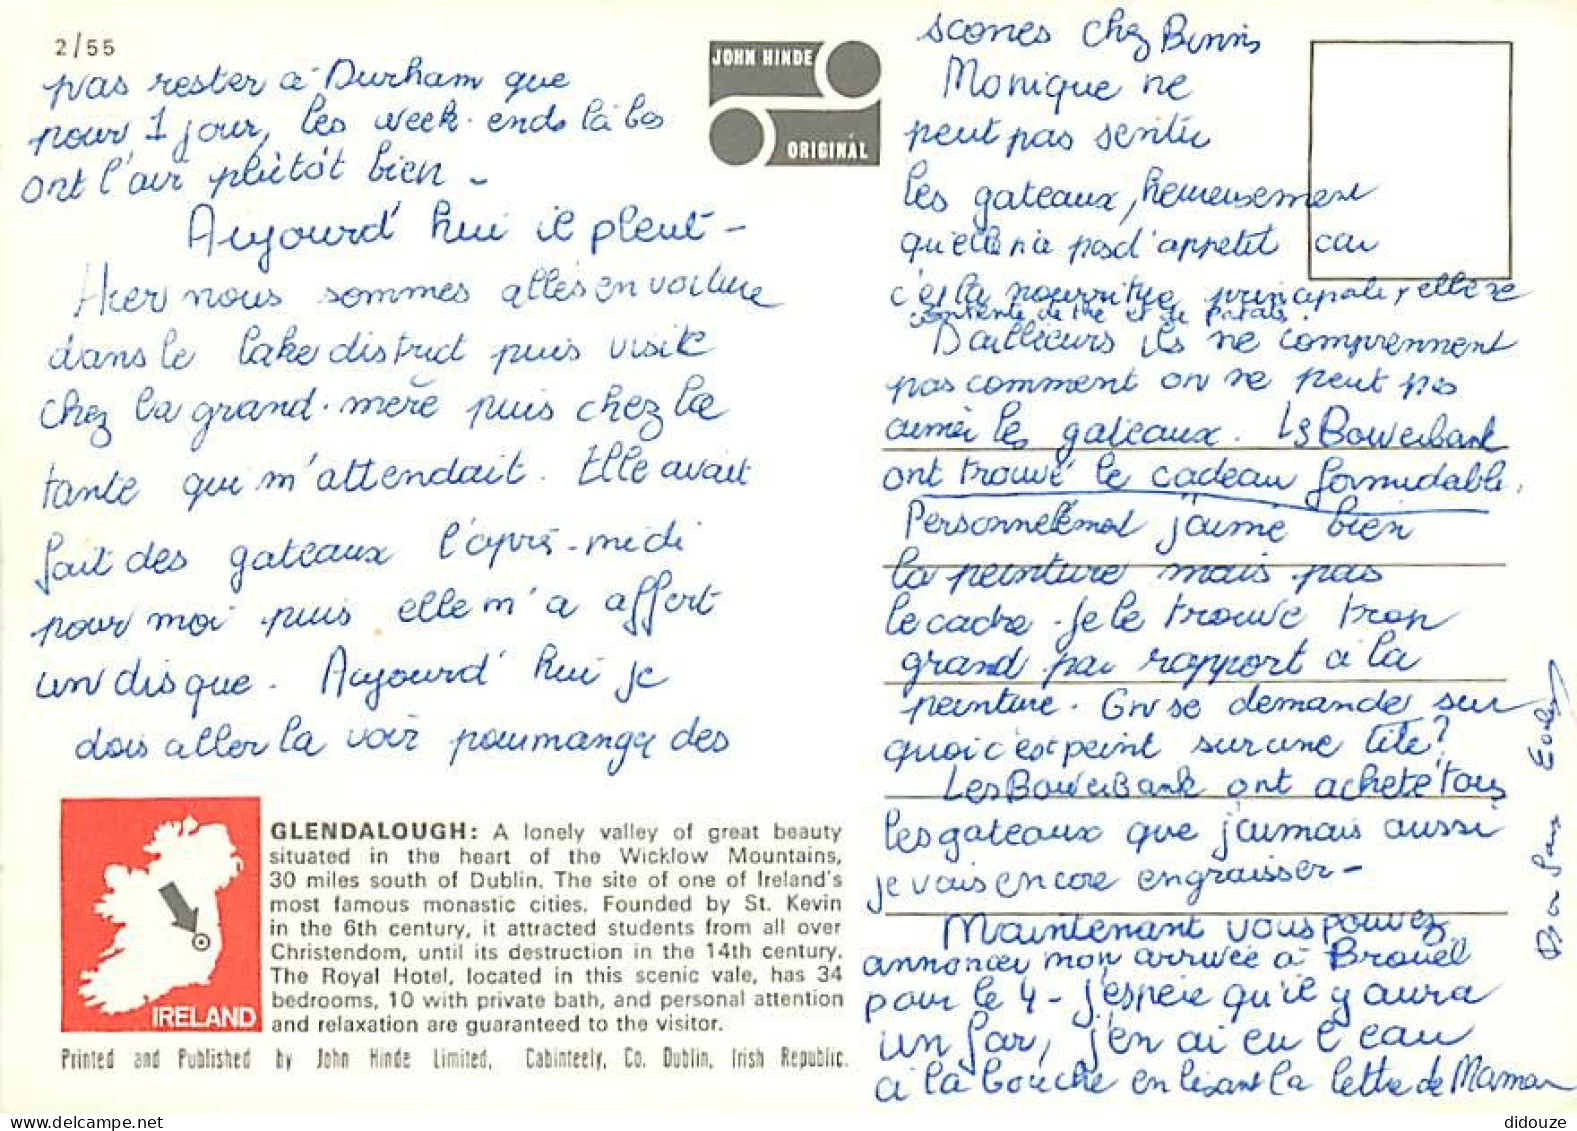 2/55
pas rester à Durham que
pour 1 jour, les week-ends là bas
ont l'air plûtôt bien -
Aujourd'hui il pleut -
Hier nous sommes allés en voiture
dans le lake district puis visite
chez la grand-mère puis chez la
tante qui m'attendait. Elle avait
fait des gateaux l'après-midi
pour moi puis elle m'a offert
un disque. Aujourd'hui je
dois aller la voir pour manger des
JOHN HINDE
ORIGINAL
scones chez Bennis
Monique ne
peut pas sentir
les gateaux, heureusement
qu'elle n'a pas d'appetit car
c'est la nourriture principale, elle se
contente de thé et de
D'ailleurs ils ne comprennent
pas comment on ne peut pas
aimer les gateaux. Ls Bowerbank
ont trouvé le cadeau formidable.
Personnelement j'aime bien
la peinture mais pas
le cadre. Je le trouve trop
grand par rapport à la
peinture. On se demande sur
quoi c'est peint sur une tîle?
Les BowerBank ont acheté tous
les gateaux que j'aimais aussi
je vais encore engraisser -
Maintenant vous pouvez
annoncer mon arrivée à Brouël
pour le 4 - J'espère qu'il y aura
un far, j'en ai eu l'eau
à la bouche en lisant la lettre de Maman
IRELAND
GLENDALOUGH: A lonely valley of great beauty
situated in the heart of the Wicklow Mountains,
30 miles south of Dublin. The site of one of Ireland's
most famous monastic cities. Founded by St. Kevin
in the 6th century, it attracted students from all over
Christendom, until its destruction in the 14th century.
The Royal Hotel, located in this scenic vale, has 34
bedrooms, 10 with private bath, and personal attention
and relaxation are guaranteed to the visitor.
Printed and Published by John Hinde Limited, Cabinteely, Co. Dublin, Irish Republic.
didouze